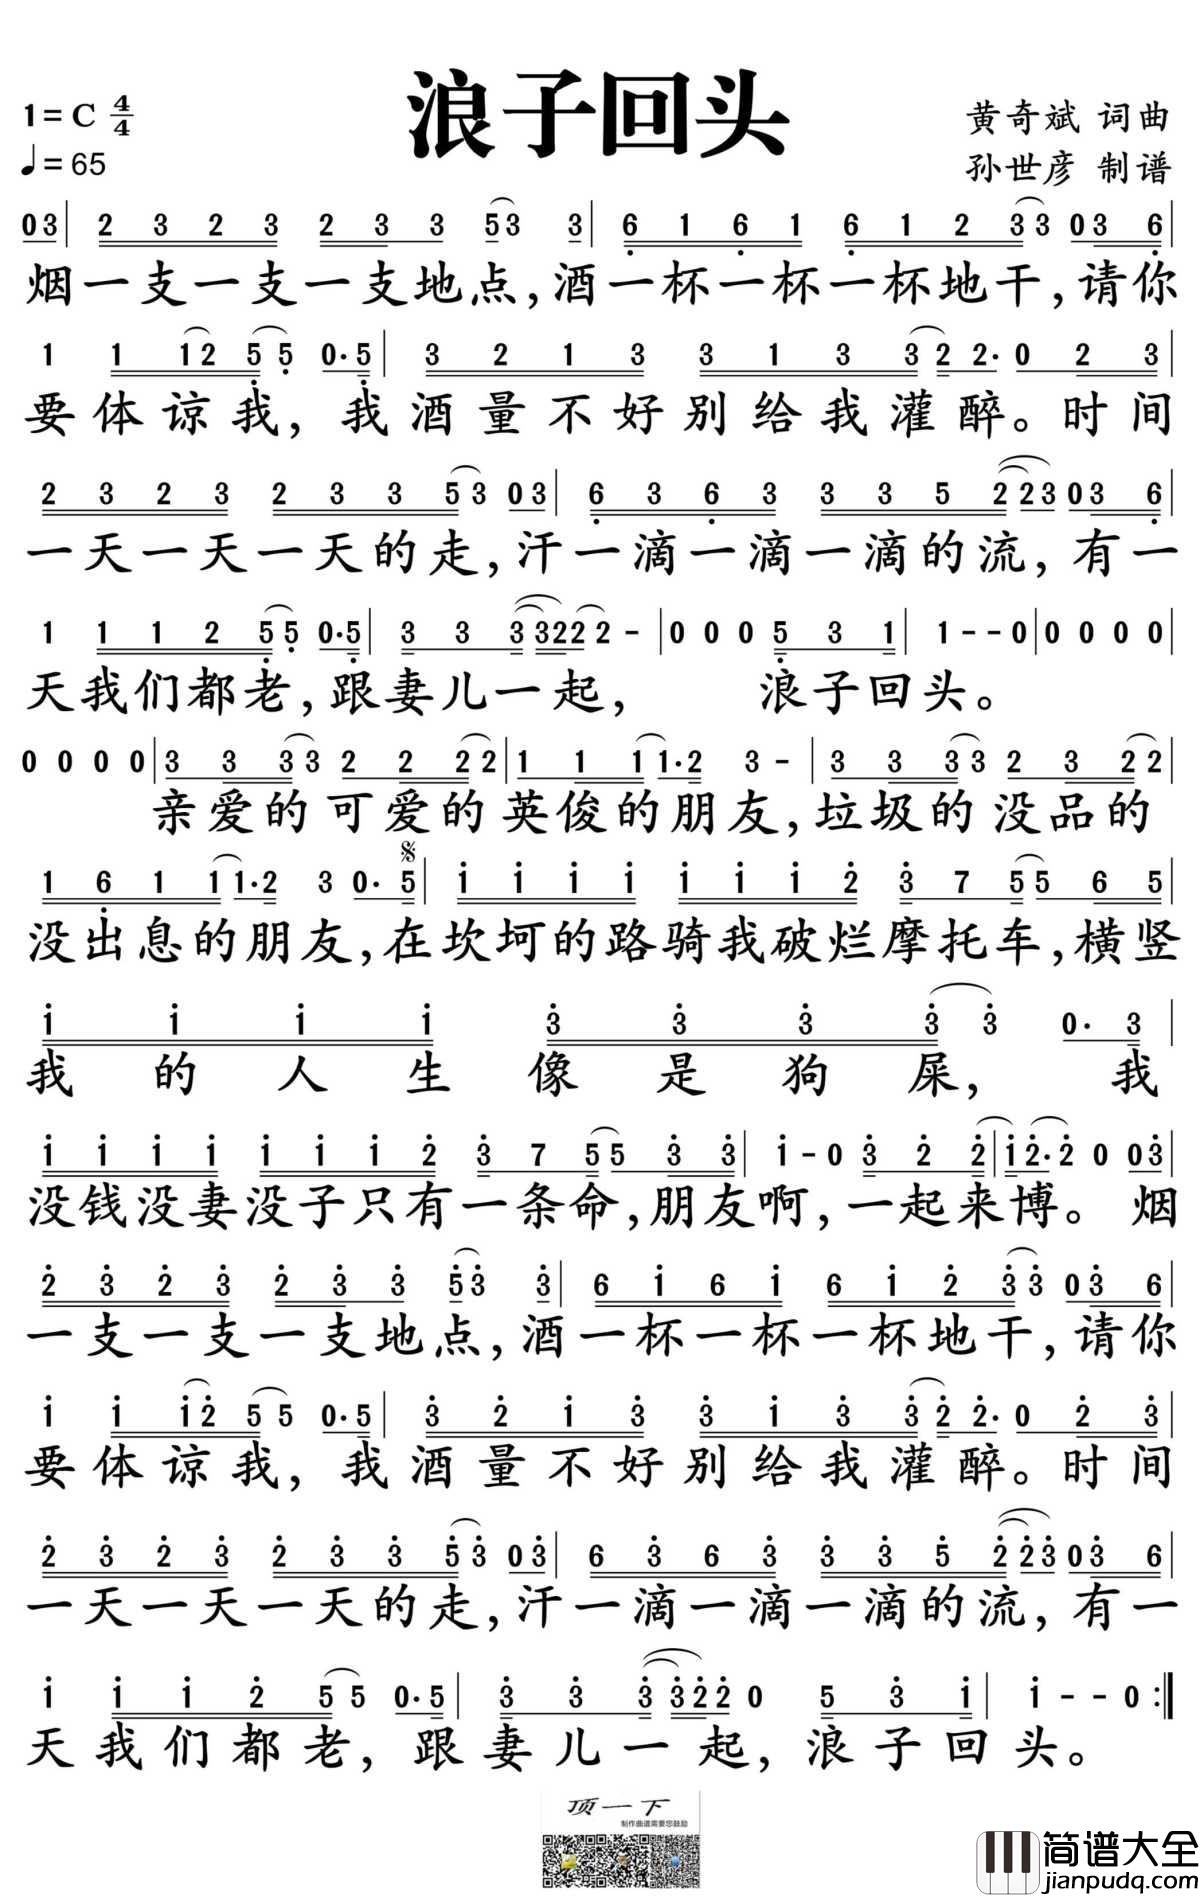 浪子回头
1=C 4/4
♩=65
黄奇斌 词曲
孙世彦 制谱
03| 2 3 2 3 2 3 3 53 3| 6 1 6 1 6 1 2 33 03 6|
烟一支一支一支地点,酒一杯一杯一杯地干,请你
1 1 12 5 5 0·5| 3 2 1 3 3 1 3 32 2· 0 2 3|
要体谅我,我酒量不好别给我灌醉。时间
2 3 2 3 2 3 3 53 03| 6 3 6 3 3 3 5 223 03 6|
一天一天一天的走,汗一滴一滴一滴的流,有一
1 1 1 2 55 0·5| 3 3 3 322 2 -|0 0 0 5 3 1| 1--0|0 0 0 0|
天我们都老,跟妻儿一起, 浪子回头。
0 0 0 0|3 3 33 2 2 22|1 1 11·2 3 -| 3 3 33 2 3 22|
亲爱的可爱的英俊的朋友,垃圾的没品的
𝄋
1 6 1 11·2 3 0· 5| i i i i i i i 2 3 7 55 6 5|
没出息的朋友,在坎坷的路骑我破烂摩托车,横竖
i i i i 3 3 3 3 3 0· 3|
我的人生像是狗屎,我
i i i i i i i 2 3 7 55 3 3| i - 0 3 2 2|i 2·2 0 03|
没钱没妻没子只有一条命,朋友啊,一起来博。烟
2 3 2 3 2 3 3 53 3| 6 i 6 i 6 i 2 33 03 6|
一支一支一支地点,酒一杯一杯一杯地干,请你
i i i2 5 5 0·5| 3 2 i 3 3 i 3 32 2· 0 2 3|
要体谅我,我酒量不好别给我灌醉。时间
2 3 2 3 2 3 3 53 03| 6 3 6 3 3 3 5 223 03 6|
一天一天一天的走,汗一滴一滴一滴的流,有一
i i i 2 5 5 0·5| 3 3 3 322 0 5 3 i| i - - 0 :||
天我们都老,跟妻儿一起,浪子回头。
顶一下
制作曲谱需要您鼓励
简谱大全
jianpudq.com